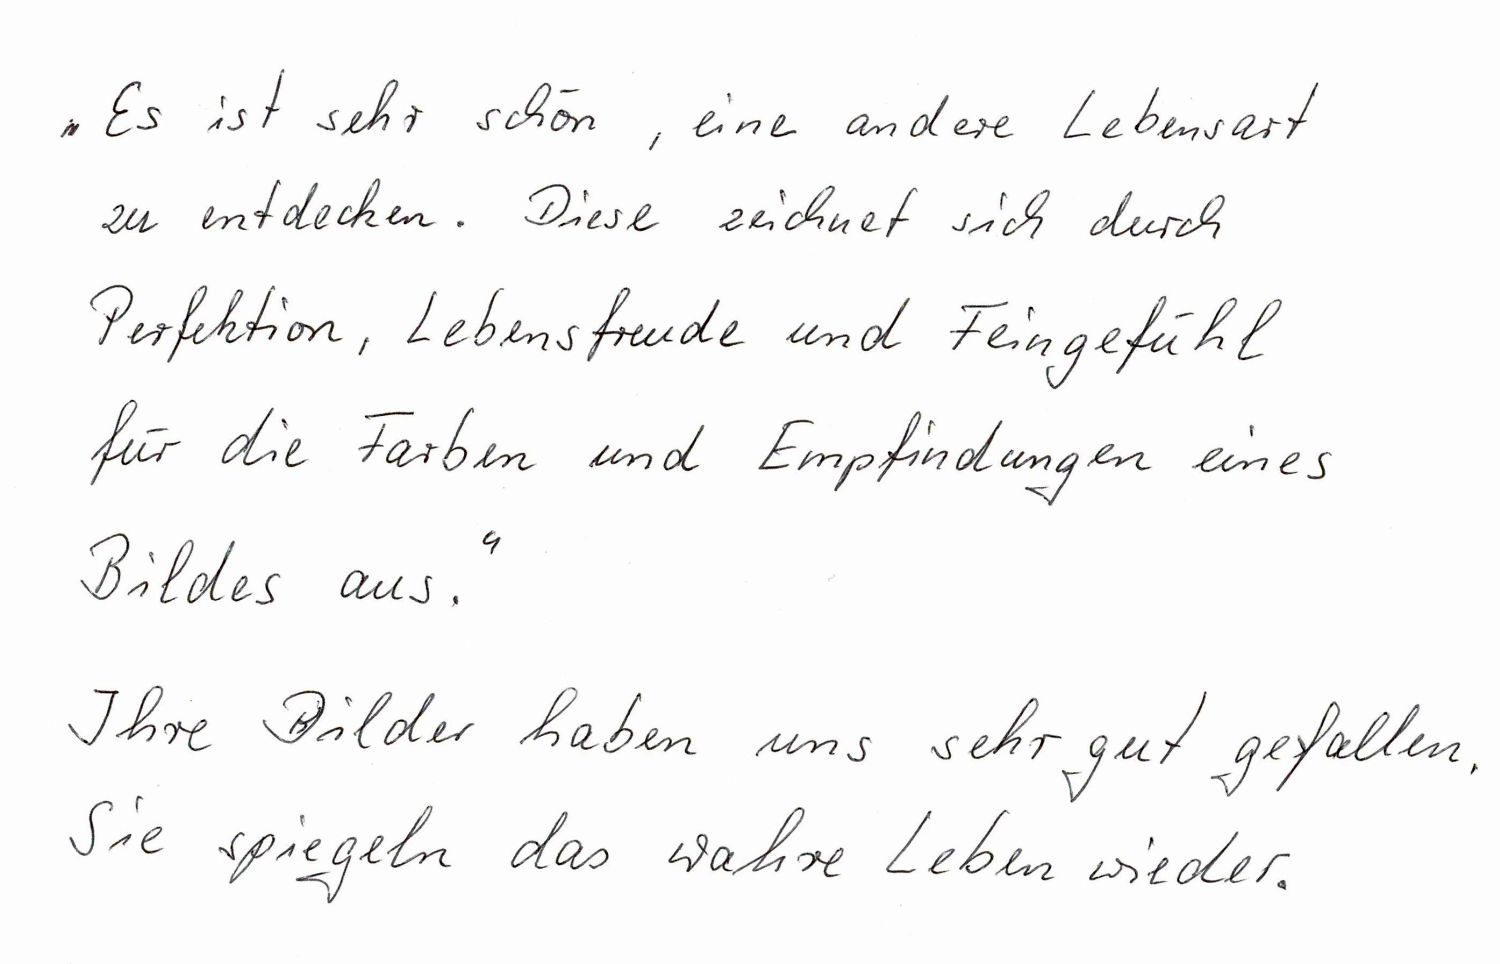 „Es ist sehr schön, eine andere Lebensart
zu entdecken. Diese zeichnet sich durch
Perfektion, Lebensfreude und Feingefühl
für die Farben und Empfindungen eines
Bildes aus.“
Ihre Bilder haben uns sehr gut gefallen.
Sie spiegeln das wahre Leben wieder.